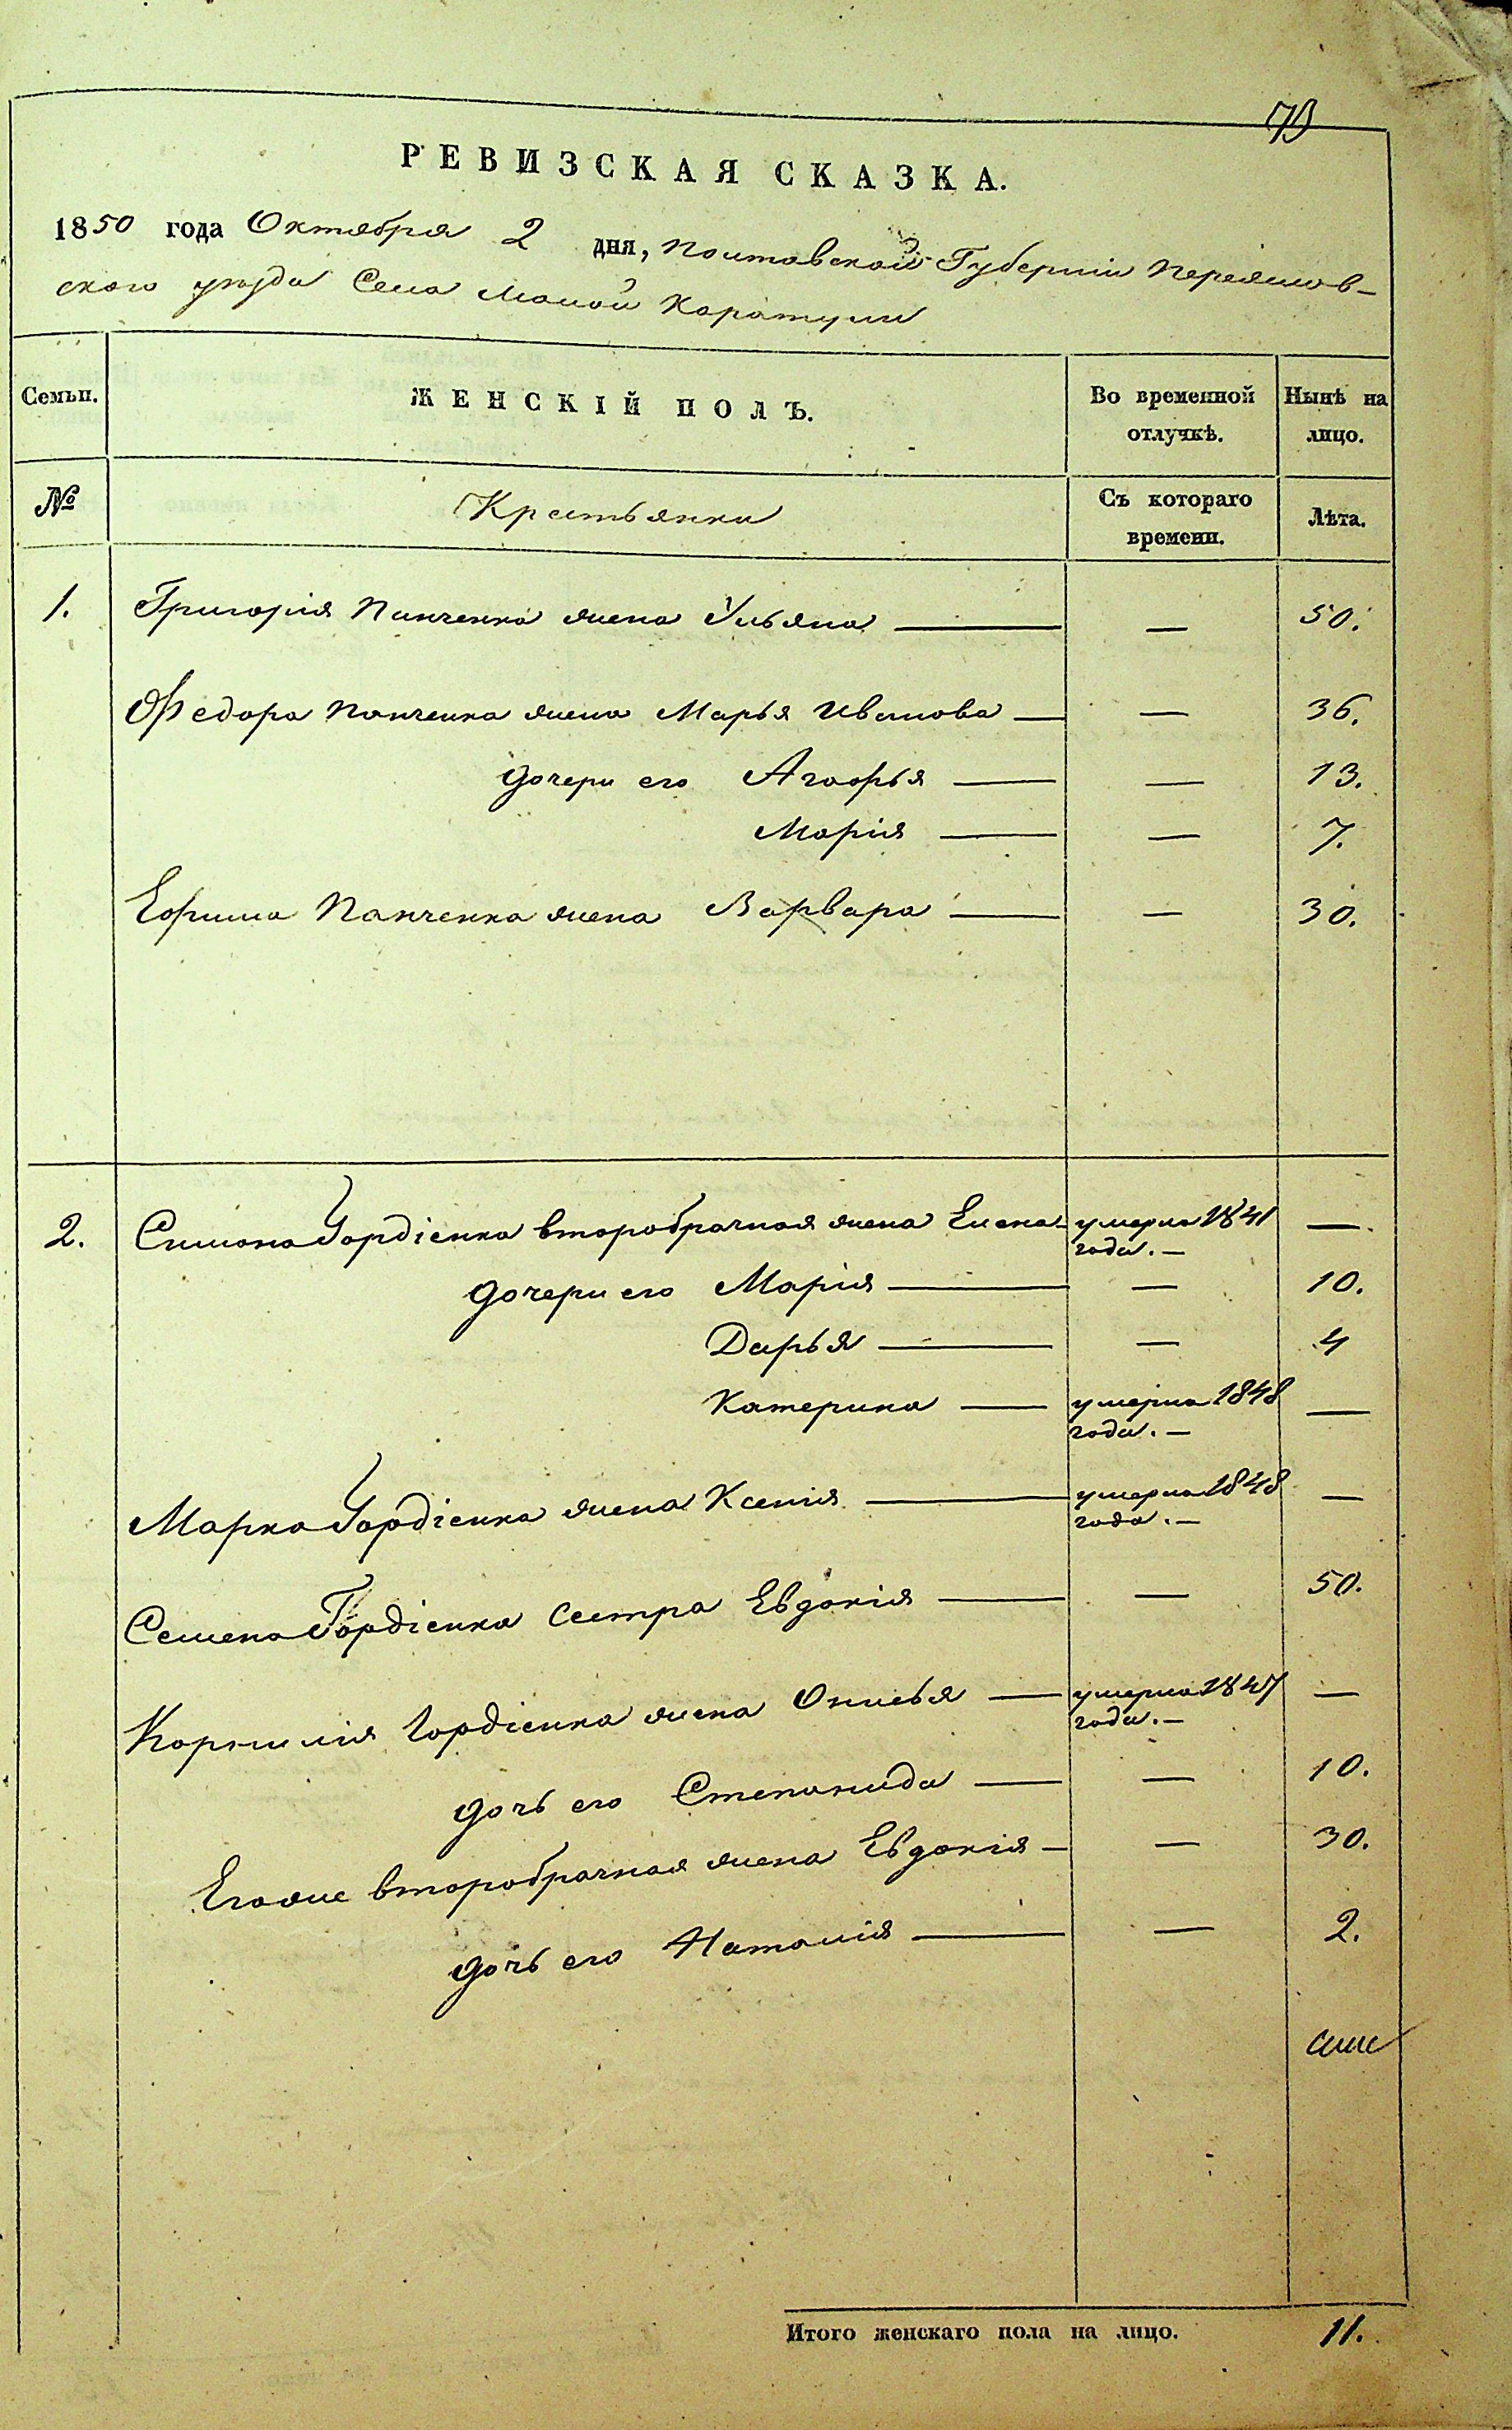 73
РЕВИЗСКАЯ СКАЗКА.
1850 года Октября 2 дня, Полтавской Губернии Переяслов-
ского уезда Села Малой Каратули
Семьи. ЖЕНСКІЙ ПОЛЪ. Во временной отлучкѣ. Нынѣ на лицо.
№ Крестьянки Съ котораго времени. Лѣта.
1. Григорія Панченка жена Ульяна — — 50.
Федора Панченка жена Марья Иванова — — 36.
дочери его Агафья — — 13.
Марія — — 7.
Ефима Панченка жена Варвара — — 30.
2. Симона Гордіенка второбрачная жена Елена - умерла 1841 года. — —
дочери его Марія — — 10.
Дарья — — 4
Катерина — умерла 1848 года. — —
Марка Гордіенка жена Ксенія — умерла 1848 года. — —
Семена Гордіенка сестра Евдокія — — 50.
Корнилія Гордіенка жена Онисья — умерла 1847 года. — —
дочь его Степанида — — 10.
Его же второбрачная жена Евдокія — — 30.
дочь его Наталія — — 2.
Итого женскаго пола на лицо. 11.